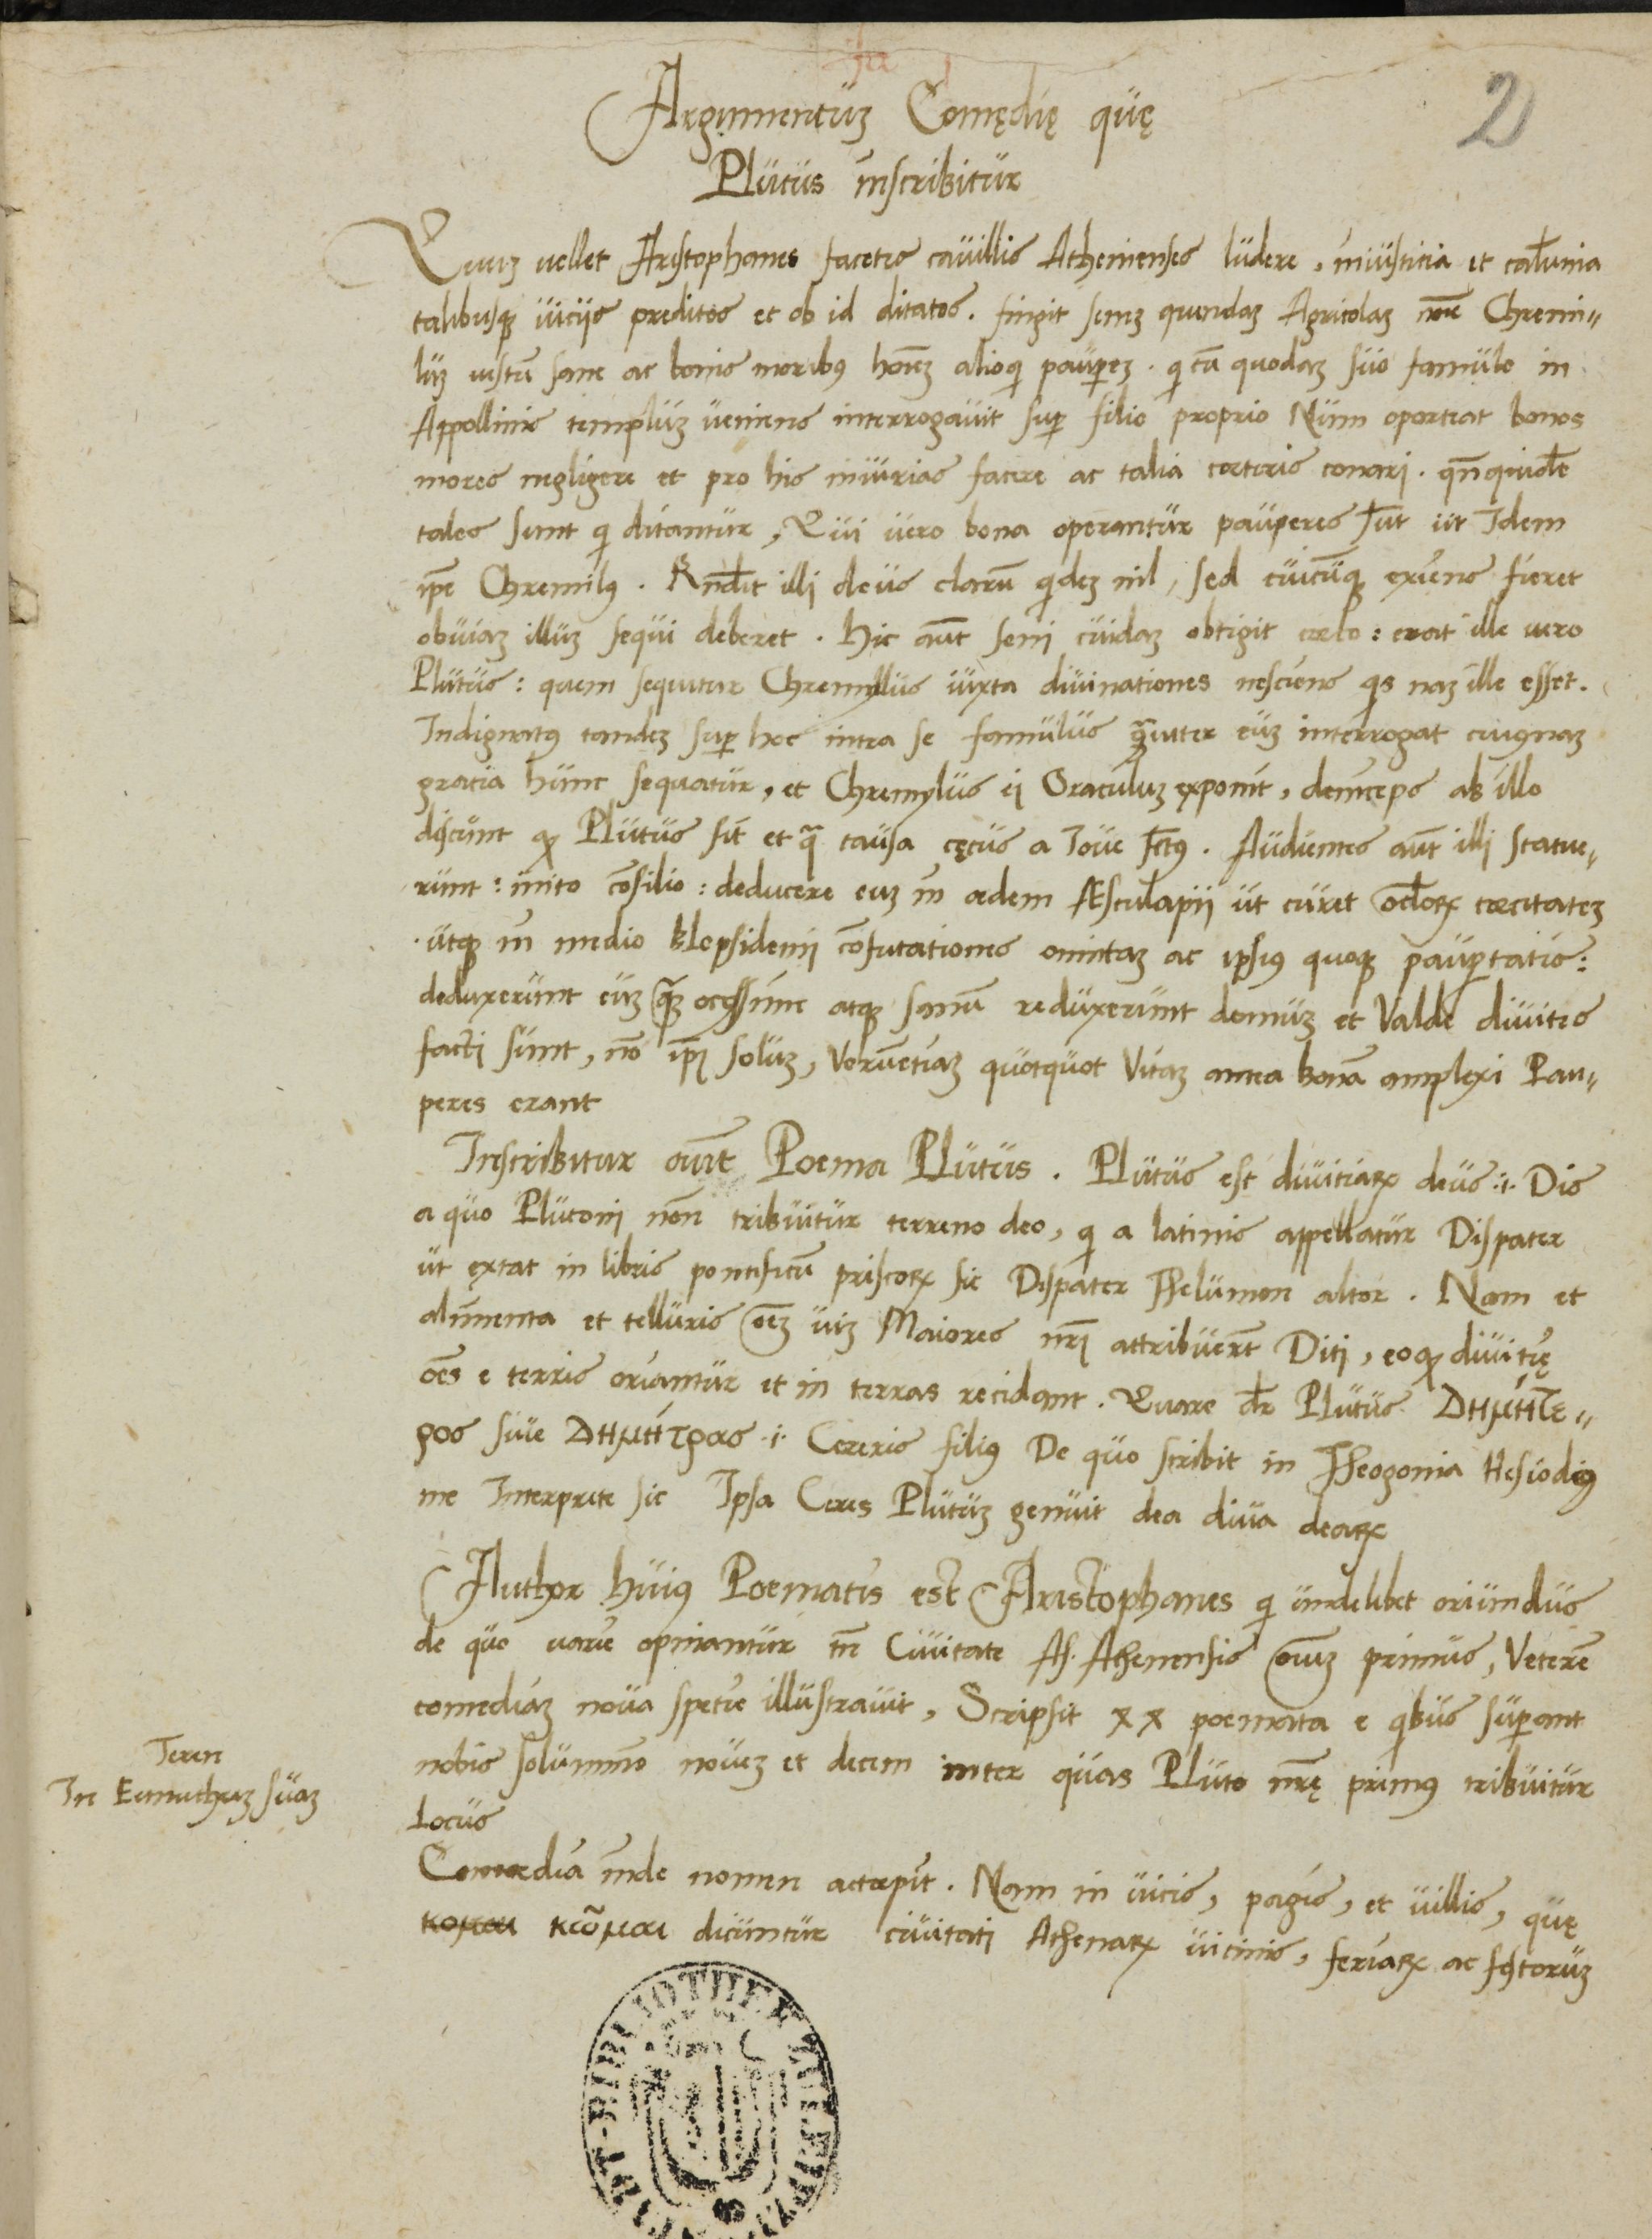 2
Argumentuz Comędię quę
Plutus inscribitur
Quuz uellet Aristophanes facetis cauillis Athenienses ludere, iniusticia et calunia
talibusqꝫ uiciis preditos et ob id ditatos. fingit senez quendaz Agricolaz noīe Chremi„
luz iustū sane ac bonis moribꝯ hoīez alioqi pauperez. qi cū quodaz suo famulo in
Appollinis templuz ueniens interrogauit sup filio proprio Num oporteat bonos
mores negligere et pro his iniurias facere ac talia coeteris conari. qn̄quidē
tales sunt qi ditantur, Qui uero bona operantur pauperes sūt ut Idem
ip̄e Chremilꝯ. Rn̄dit illi deus clarū qidez nil, sed cuicūqꝫ exiens fieret
obuiaz illuz sequi deberet. Hic aūt seni cuidaz obtigit coelo: erat ille uero
Plutus: quem sequitur Chremyllus iuxta diuinationes nesciens qis naz ille esset.
Indignatꝯ tandez sup hoc intra se famulus grauiter euz interrogat cuiꝯnaz
gratia hunc sequatur, et Chremylus ei Oraculuz exponit, deinceps ab illo
discunt qꝫ Plutus sit et qa causa cęcus a Ioue fctꝯ. Audientes aūt illi statue„
runt: inito cōsilio: deducere euz in ædem Æsculapii ut curet oclōꝝ cæcitatez
utqꝫ in medio Blepsidemi cōfutationes omittaz ac ipsiꝯ quoqꝫ paupertatis:
deduxerunt euz qaz ocyssime atqꝫ sanū reduxerunt domuz et Valde diuites
facti sunt, nō ip̄i soluz, Verūetiaz quotquot Vitaz antea bonā amplexi Pau„
peres erant
Inscribitur aūt Poema Plutus. Plutus est diuitiaꝝ deus .i. Dis
a quo Plutoni nōn tribuitur terreno deo, qi a latinis appellatur Dispater
ut extat in libris pontificū priscoꝝ sic Dispater Thelumen altor. Nam et
alimenta et telluris oēz uiz Maiores nr̄i attribuerūt Diti, eo qꝫ diuitię
oēs e terris oriantur et in terras recidant. Quare dr̄ Plutus Δημητε„
ρος siue Δημητρας .i. Cereris filiꝯ De quo scribit in Theogonia Hesiodꝯ
me Interprete sic Ipsa Ceres Plutuz genuit dea diua deaꝝ
Author huiꝯ Poematis est Aristophanes qi undelibet oriundus
de quo uarie opinantur tn̄ Ciuitate Atheniensis oīuz primus, Veterē
comediaz noua spetie illustrauit, Scripsit xx poemata e qibus supant
nobis solummō nouez et decem inter quas Pluto nr̄ę primꝯ tribuitur
Locus
Teren
In Eunuchuz suaz
Comœdia inde nomen accepit. Nam in uicis, pagis, et uillis, quę
κομαι κῶμαι dicuntur ciuitati Athenaꝝ uicinis, feriaꝝ ac festoruz